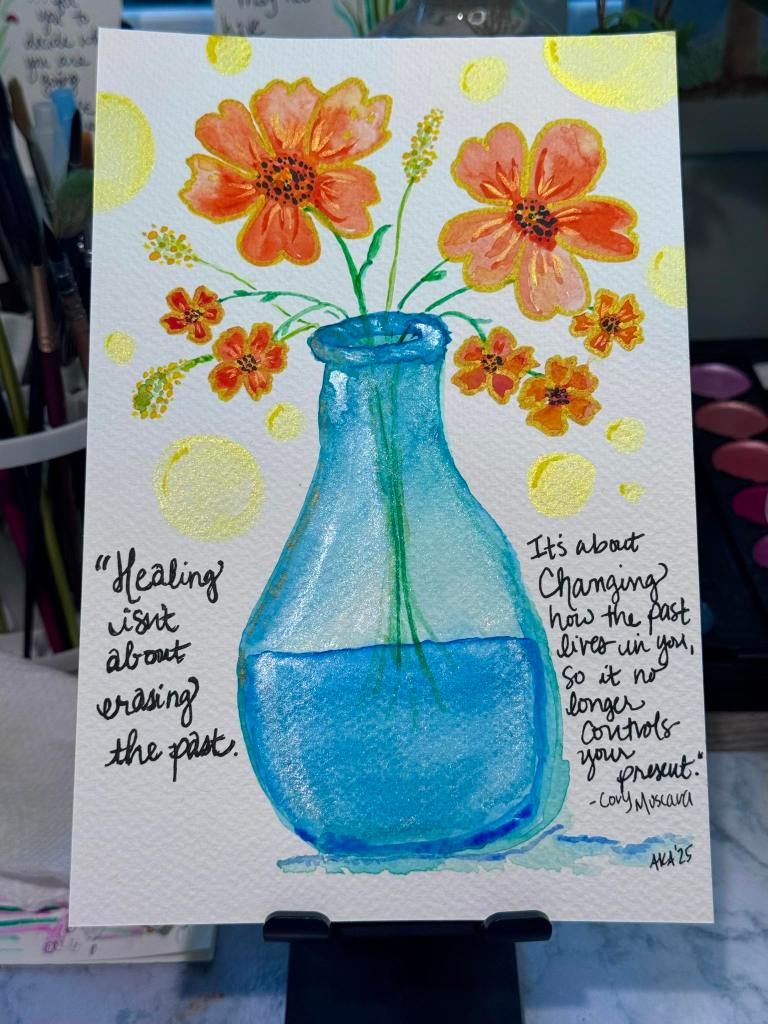 you to
decide wh
you are
going
"Healing
isn't
about
erasing
the past.
It's about
Changing
how the past
lives in you,
so it no
longer
controls
your
present."
-Cory Muscara
AKA '25